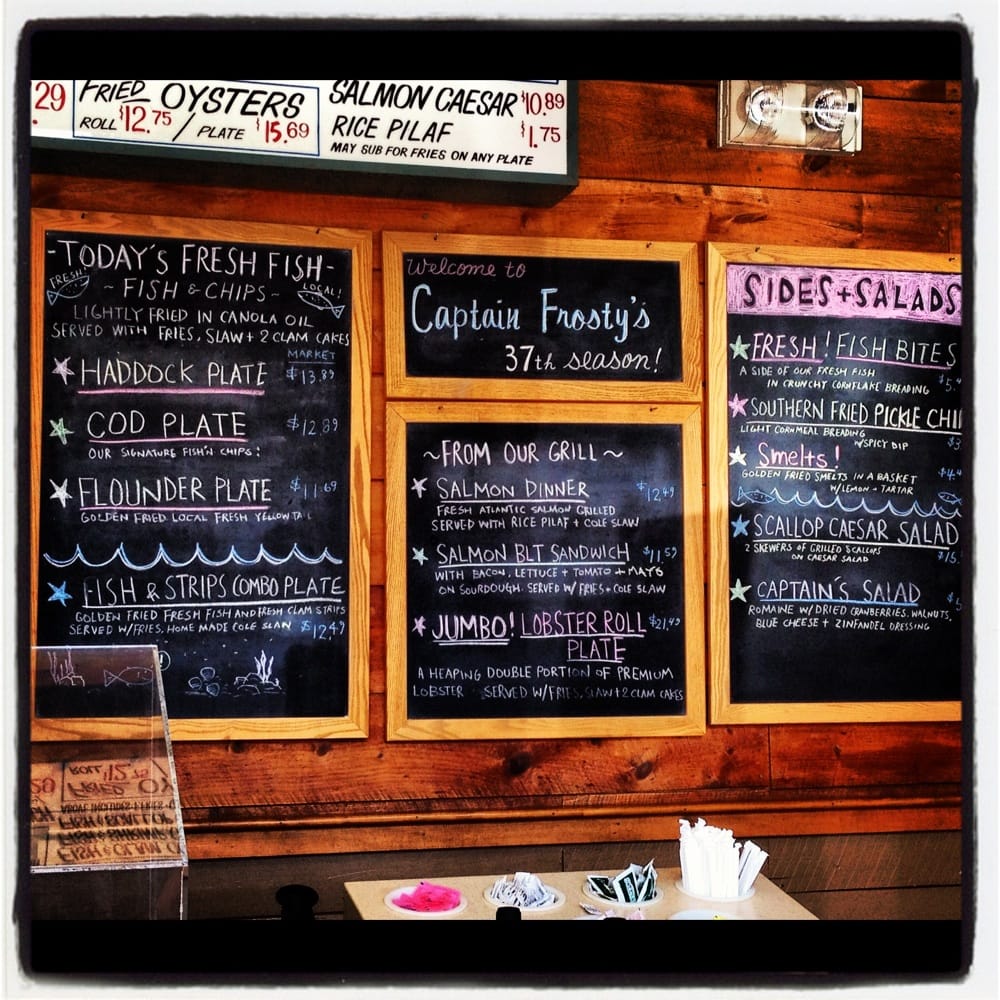 .29
FRIED OYSTERS
ROLL $12.75 / PLATE $15.69
SALMON CAESAR $10.89
RICE PILAF $1.75
MAY SUB FOR FRIES ON ANY PLATE
-TODAY'S FRESH FISH-
FRESH!
~ FISH & CHIPS ~
LOCAL!
LIGHTLY FRIED IN CANOLA OIL
SERVED WITH FRIES, SLAW + 2 CLAM CAKES
MARKET
HADDOCK PLATE $13.89
COD PLATE $12.89
OUR SIGNATURE FISH'N CHIPS!
FLOUNDER PLATE $11.69
GOLDEN FRIED LOCAL FRESH YELLOWTAIL
FISH & STRIPS COMBO PLATE
GOLDEN FRIED FRESH FISH AND FRESH CLAM STRIPS
SERVED W/FRIES, HOME MADE COLE SLAW $12.49
Welcome to
Captain Frosty's
37th season!
~FROM OUR GRILL~
SALMON DINNER $12.49
FRESH ATLANTIC SALMON GRILLED
SERVED WITH RICE PILAF + COLE SLAW
SALMON BLT SANDWICH $11.59
WITH BACON, LETTUCE + TOMATO + MAYO
ON SOURDOUGH. SERVED W/FRIES + COLE SLAW
JUMBO! LOBSTER ROLL $21.49
PLATE
A HEAPING DOUBLE PORTION OF PREMIUM
LOBSTER SERVED W/FRIES, SLAW + 2 CLAM CAKES
SIDES + SALADS
FRESH! FISH BITES
A SIDE OF OUR FRESH FISH
IN CRUNCHY CORNFLAKE BREADING $5.
SOUTHERN FRIED PICKLE CHI
LIGHT CORNMEAL BREADING
W/SPICY DIP $3
Smelts!
GOLDEN FRIED SMELTS IN A BASKET $4.
W/LEMON + TARTAR
SCALLOP CAESAR SALAD
2 SKEWERS OF GRILLED SCALLOPS
ON CAESAR SALAD $15.
CAPTAIN'S SALAD
ROMAINE W/DRIED CRANBERRIES, WALNUTS,
BLUE CHEESE + ZINFANDEL DRESSING